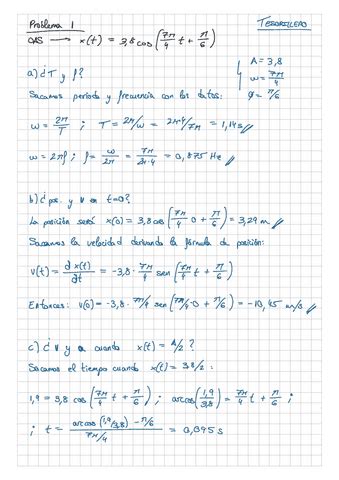 Problema 1
TESORILLERO
OAS → x(t) = 3,8 cos (7π/4 t + π/6)
A = 3,8
ω = 7π/4
Φ = π/6
a) ¿T y f?
Sacamos periodo y frecuencia con los datos:
ω = 2π/T ; T = 2π/ω = 2π·4/7π = 1,14 s
ω = 2πf ; f = ω/2π = 7π/2π·4 = 0,875 Hz
b) ¿pos. y v en t=0?
La posición será x(0) = 3,8 cos (7π/4 0 + π/6) = 3,29 m
Sacamos la velocidad derivando la fórmula de posición:
v(t) = dx(t)/dt = -3,8 · 7π/4 sen (7π/4 t + π/6)
Entonces: v(0) = -3,8 · 7π/4 sen (7π/4·0 + π/6) = -10,45 m/s
c) ¿v y a cuando x(t) = A/2?
Sacamos el tiempo cuando x(t) = 3,8/2:
1,9 = 3,8 cos (7π/4 t + π/6) ; arcos (1,9/3,8) = 7π/4 t + π/6 ;
; t = arcos (1,9/3,8) - π/6 / 7π/4 = 0,095 s